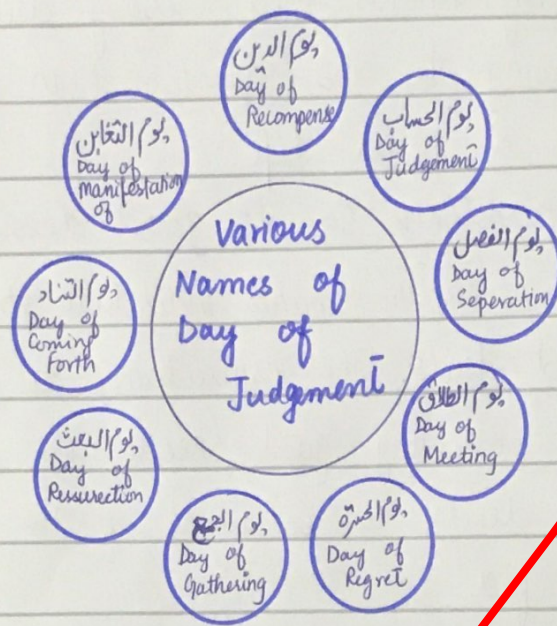 Various
Names of
Day of
Judgement
يوم الدين
Day of
Recompense
يوم الحساب
Day of
Judgement
يوم الفصل
Day of
Seperation
يوم الطلاق
Day of
Meeting
يوم الحسرة
Day of
Regret
يوم الجمع
Day of
Gathering
يوم البعث
Day of
Ressurection
يوم التناد
Day of
Coming
Forth
يوم التغابن
Day of
manifestation
of